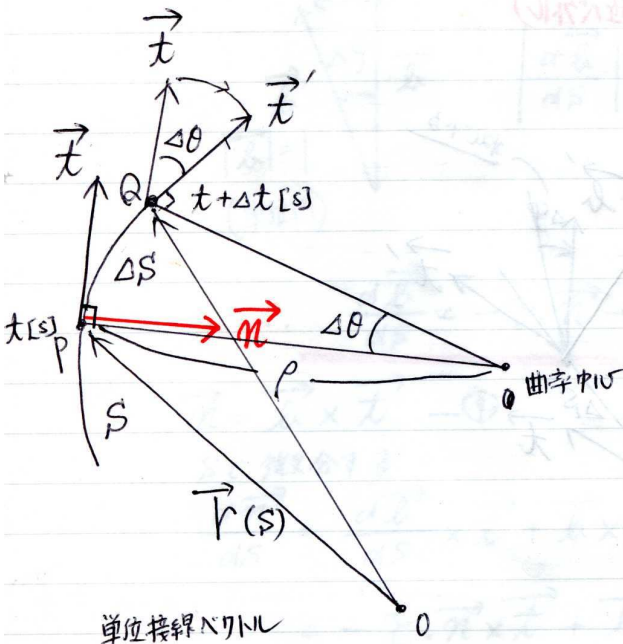 →t
→t′
Δθ
→t
Q
t+Δt[s]
ΔS
t[s]
P
→n
Δθ
ρ
曲率中心
S
→r(S)
O
単位接線ベクトル